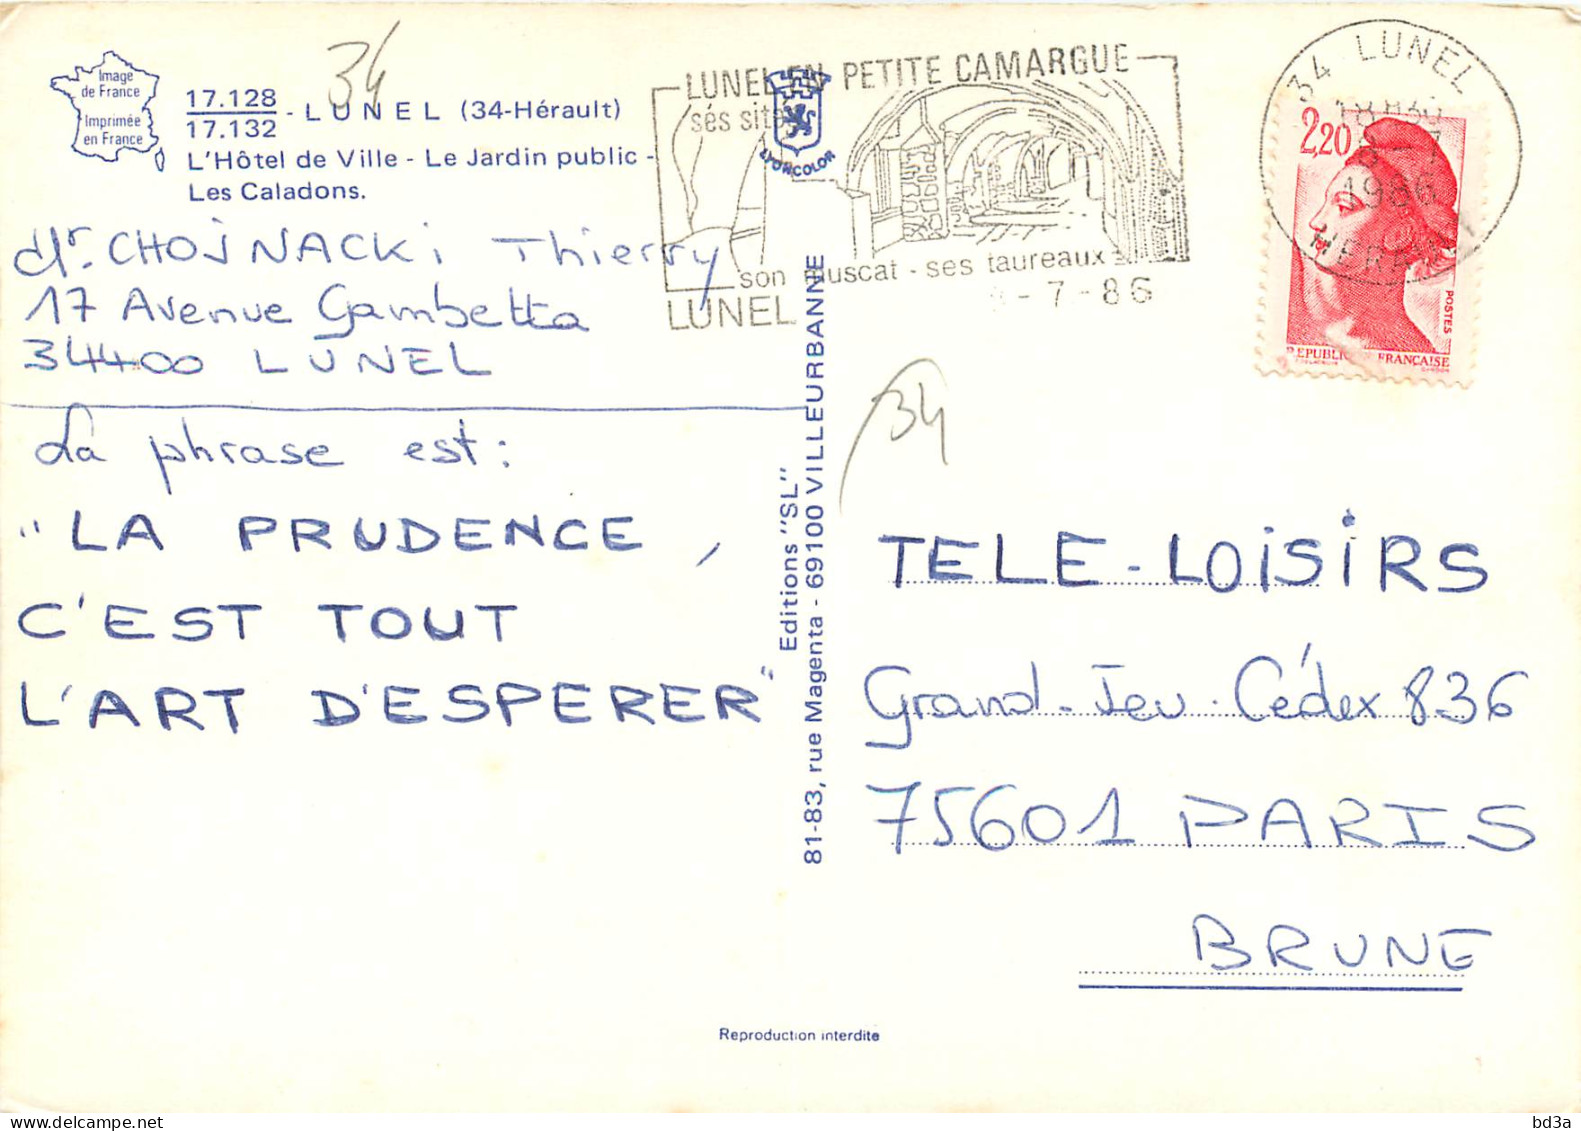 Image
de France
Imprimée
en France
17.128
17.132
- LUNEL (34-Hérault)
L'Hôtel de Ville - Le Jardin public -
Les Caladons.
34
LUNEL EN PETITE CAMARGUE
ses sites
LYONCOLOR
son muscat - ses taureaux
LUNEL
- 7 - 86
34 LUNEL
18H30
- 7
1986
HERAULT
2,20
POSTES
REPUBLIQUE FRANÇAISE
Mr. CHOJNACKI Thierry
17 Avenue Gambetta
34400 LUNEL
La phrase est :
"LA PRUDENCE,
C'EST TOUT
L'ART D'ESPERER"
Editions "SL"
81-83, rue Magenta - 69100 VILLEURBANNE
34
TELE-LOISIRS
Grand-Jeu-Cédex 836
75601 PARIS
BRUNE
Reproduction interdite
bd3a